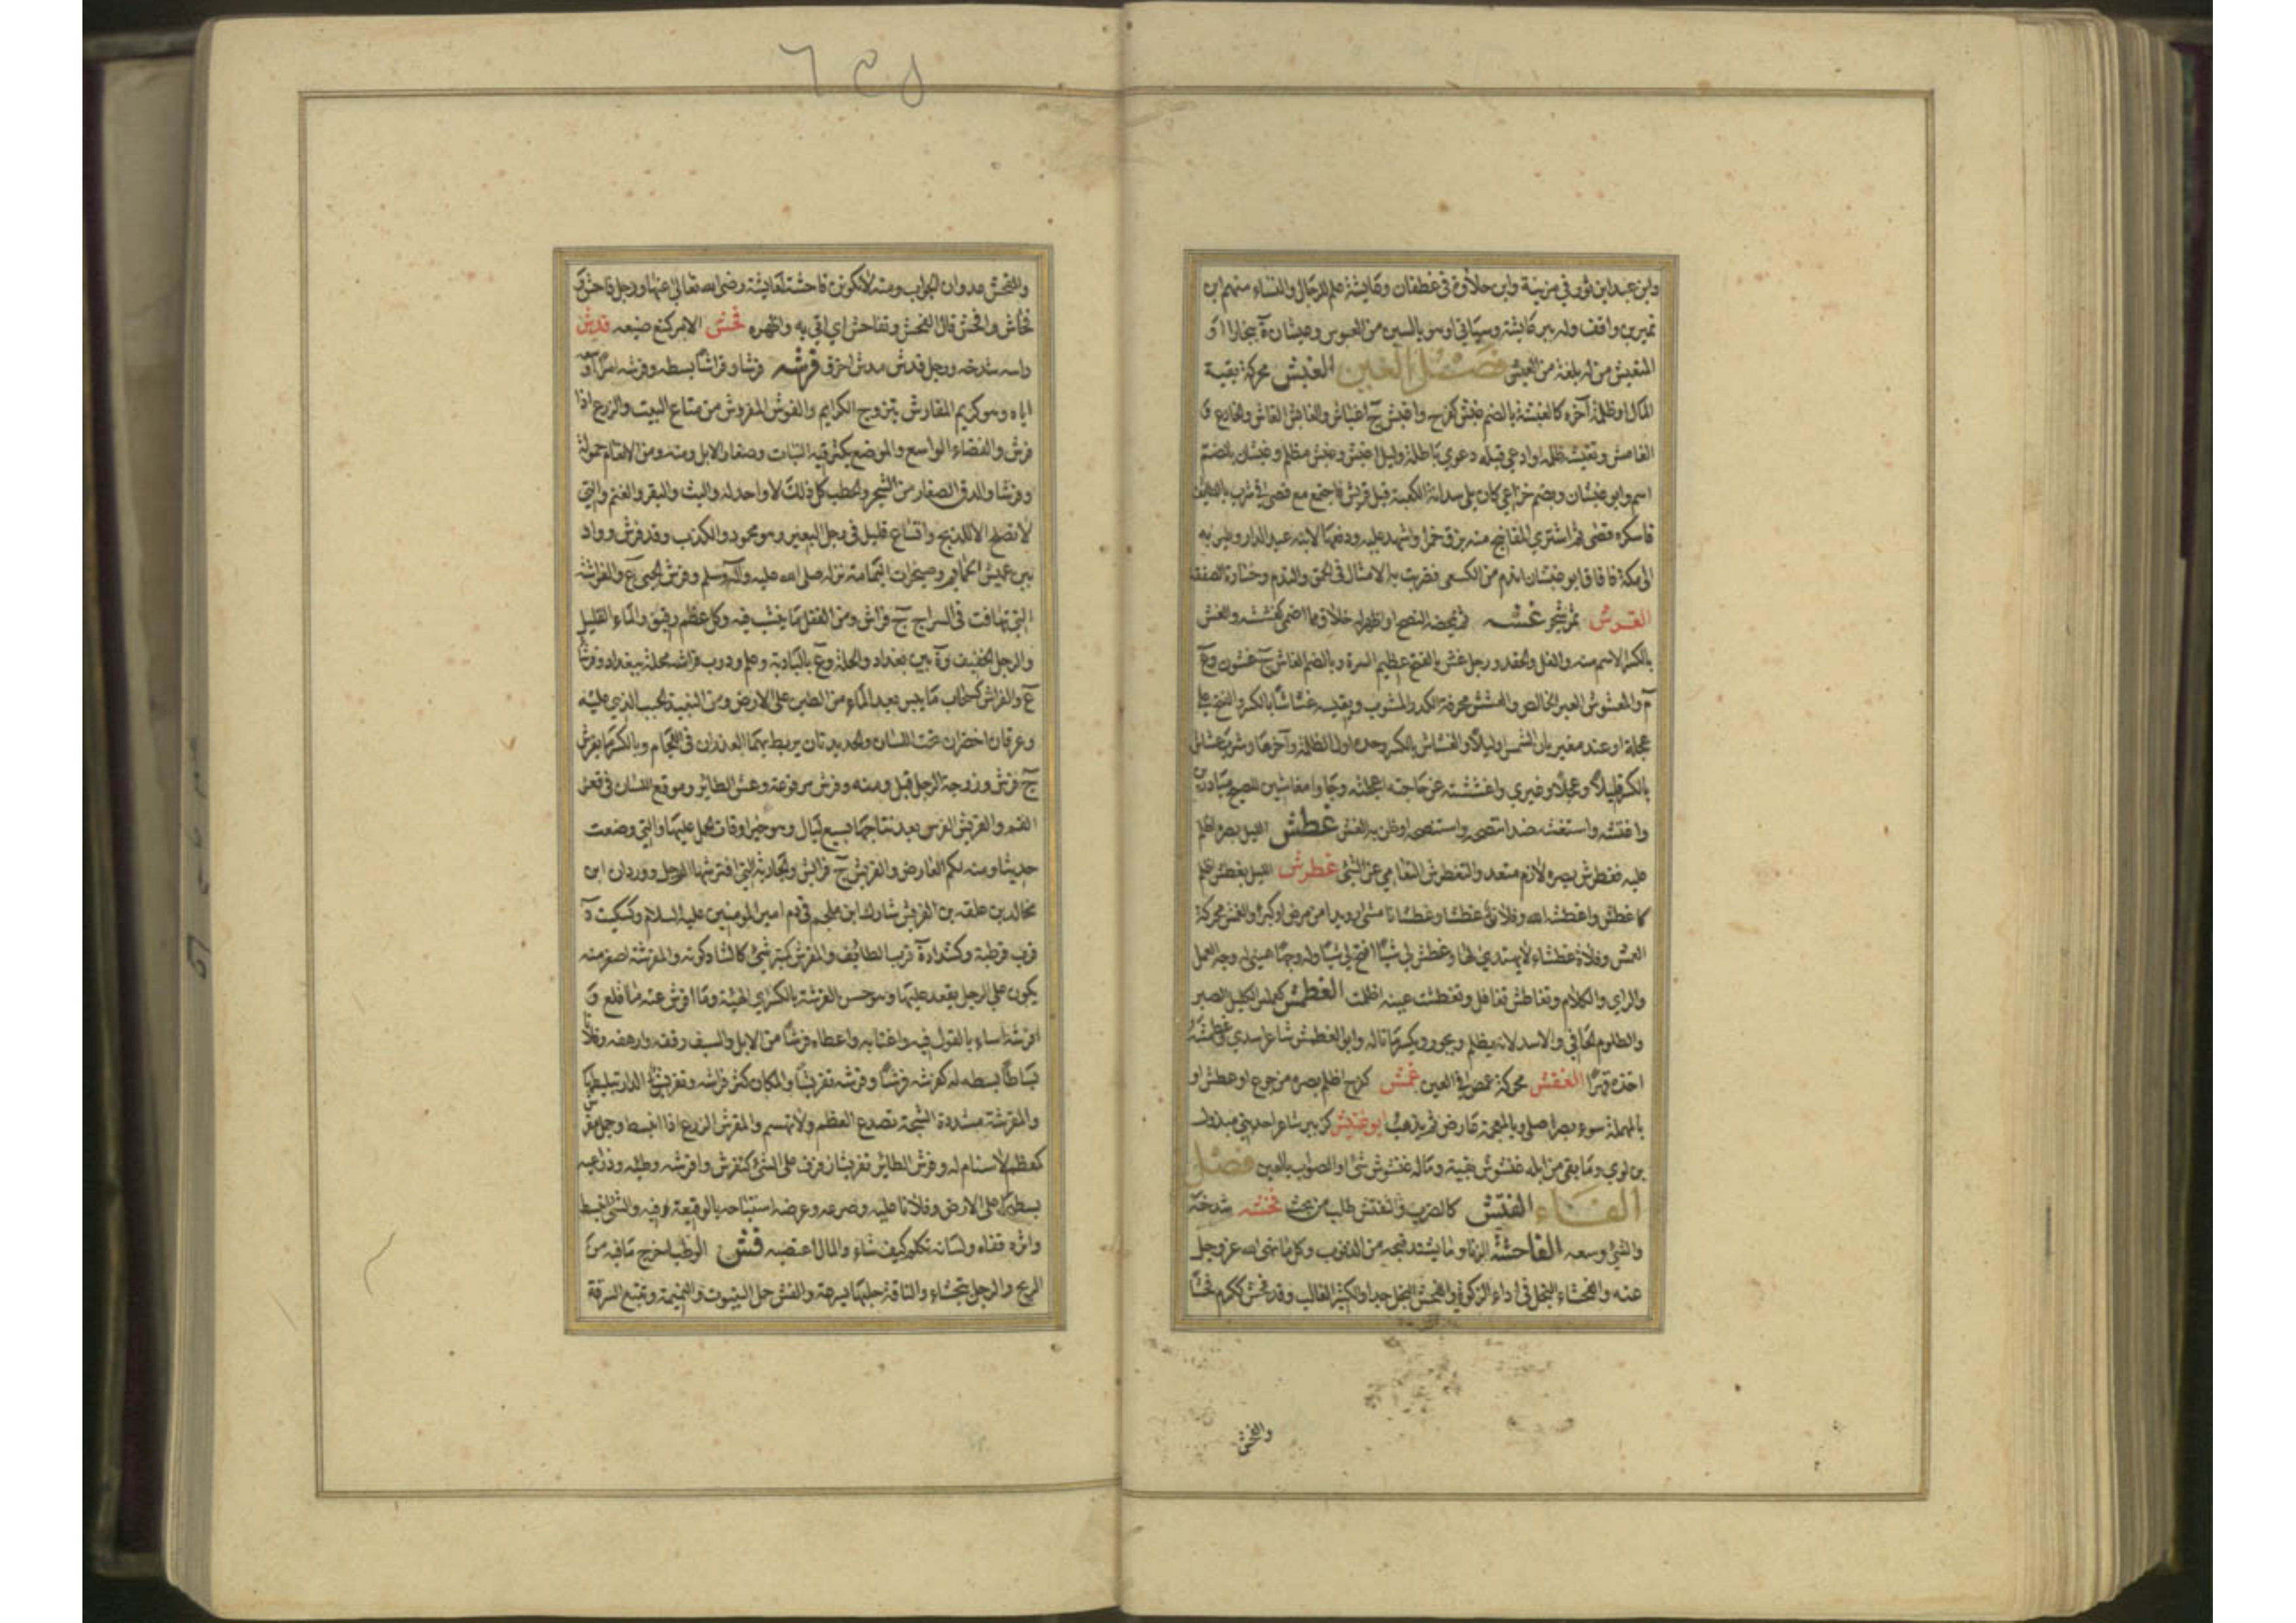 وابن عبد ابن ثور في مزينة وابن حلاوة في غطفان وعايشة علم للرجال والنساء منهم ابن
نمير بن واقف وله بير عايشة وسياتي او هو بالسين من العبوس وعيشان ة ببخارا او
المتعيش من له بلغة من العيش فصل الغين الغبش محركة بقية
الليل او ظلمة آخره كالغبشة بالضم غبش كفرح واغبش ج اغباش والغابش الغاش والخادع و
الغامش وتغبشه ظلمه او ادعى قبله دعوي باطلة وليل اغبش وغبش مظلم وغبشان بالضم
اسم وابو غبشان ويضم خزاعي كان يلي سدانة الكعبة قبل قريش فاجتمع مع قصي في شرب بالطايف
فاسكره قصي ثم اشتري المفاتيح منه بزق خمر واشهد عليه ودفعها لابنه عبد الدار وطير به
الى مكة فافاق ابو غبشان اندم من الكسعي فضربت به الامثال في الحمق والندم وخسارة الصفقة
الغرش ثمر شجر غشه لم يمحضه النصح او اظهر له خلاف ما اضمر كغششه والغش
بالكسر الاسم منه والغل والحقد ورجل غش بالفتح عظيم السرة وبالضم الغاش ج غشون وع
م والمغشوش الغير الخالص والغشش محركة الكدر المشوب ولقيته غشاشا بالكسر والفتح علي
عجلة او عند مغيربان الشمس او ليلا والغشاش بالكسر وحده اول الظلمة وآخرها وشرب غشاش
بالكسر قليل او عجل او غير مري واغششته عن حاجته اعجلته وجاوا مغاشين للصبح مبادرين
واغتشه واستغشه ضد انتصحه واستنصحه او ظن به الغش غطش الليل يغطش اظلم
عليه فغطرش بصره لازم متعد والتغطرش التعامي عن الشئ غطرش الليل بصره اظلم
كاغطش واغطشه الله وفلان غطشا وغطشانا مشى رويدا من مرض او كبر والغطش محركة
العمش وفلاة غطشاء لا يهتدي لها وغطش لي شيئا افتح لي شيئا ووجها هيئ لي وجه العمل
والراي والكلام وتغاطش تغافل وتغطشت عينه اظلمت الغطمش كعملس الكليل البصر
والظلوم الجافي والاسد لانه يظلم ويجور ويكسر ما ناله وابو الغطمش شاعر اسدي وغطمشه
اخذه قهرا الغفش محركة غمص في العين غمش كفرح اظلم بصره من جوع او عطش او
بالمهملة سوء بصر اصلي وبالمعجمة عارض ثم يذهب ابو غنيش كزبير شاعر احد بني مبذول
بن لوي وما بقي من ابله غنشوش بقية وما له غنشوش شئ او الصواب بالعين فصل
الفاء الفتش كالضرب والتفتيش طلب من بحث فحشه شدخه
والشئ وسعه الفاحشة الزنا وما يشتد قبحه من الذنوب وكل ما نهى الله عز وجل
عنه والفحشاء البخل في اداء الزكوة والفاحش البخيل جدا والكثير الغالب وقد فحش ككرم فحشا
والفحش
والفحش عدوان الجواب ومنه لا تكوني فاحشة لعايشة رضى الله تعالى عنها ورجل فاحش و
فحاش وافحش قال الفحش وتفاحش اي اتى به واظهره فخش الامر كمنع ضيعه فدش
راسه شدخه ورجل فدش مدش اخرق فرشه فرشا وفراشا بسطه وفرشه امرا اوسعه
اياه وهو كريم المفارش يتزوج الكرايم والفرش المفروش من متاع البيت والزرع اذا
فرش والفضاء الواسع والموضع يكثر فيه النبات وصغار الابل ومنه ومن الانعام حمولة
وفرشا والدق الصغار من الشجر والحطب كل ذلك لا واحد له والبث والبقر والغنم والتي
لا تصلح الا للذبح واتساع قليل في رجل البعير وهو محمود والكذب وقد فرش وواد
بين عميس الحمام وصخيرات الثمامة نزله صلى الله عليه وآله وسلم وفرش الحبى ع والفراشة
التي تهافت في السراج ج فراش ومن القفل ما ينشب فيه وكل عظم رقيق والماء القليل
والرجل الخفيف وة بين بغداد والحلة وع بالبادية وعلم ودرب فراشة محلة ببغداد وفرشا
ع والفراش كسحاب ما يبس بعد الماء من الطين على الارض ومن النبيذ الحبب الذي عليه
وعرقان اخضران تحت اللسان والحديدتان يربط بهما العذاران في اللجام وبالكسر ما يفرش
ج فرش وزوجة الرجل قيل ومنه وفرش مرفوعة وعش الطائر وموقع اللسان في قعر
الفم والفريش الفرس بعد نتاجها بسبع ليال وهو خير اوقات الحمل عليها والتي وضعت
حديثا ومنه لكم العارض والفريش ج فرائش والجارية التي افترشها الرجل ووردان ابن
مجالد بن علقه بن الفريش شارك ابن ملجم في دم امير المومنين عليه السلام وكسكيت ة
قرب قرطبة وكشداد ة قرب الطائف والمفرش كمنبر شئ كالشاذكونه والمفرشة اصغر منه
يكون على الرحل يقعد عليها وهو حسن الفرشة بالكسر اي الهيئة وما افرش عنه ما اقلع و
افرشه اساء بالقول فيه واغتابه واعطاه فرشا من الابل والسيف رققه وارهفه وفلانا
بساطا بسطه له كفرشه فرشا وفرشه تفريشا والمكان كثر فراشه وتفريش الدار تبليطها
والمفرشة مشددة الشجة تصدع العظم ولا تهشم والمفرش الزرع اذا انبسط وجمل مفرش
كمعظم لا سنام له وفرش الطائر تفريشا رفرف على الشئ كتفرش وافترشه وطئه وذراعيه
بسطهما على الارض وفلانا غلبه وصرعه وعرضه استباحه بالوقيعة فيه والشئ انبسط
واثره قفاه ولسانه تكلم كيف شاء والمال اغتصبه فش الوطب اخرج ما فيه من
الريح والرجل تجشاء والناقة حلبها بسرعة والفش حمل الينبوت والنميمة وتتبع السرقة